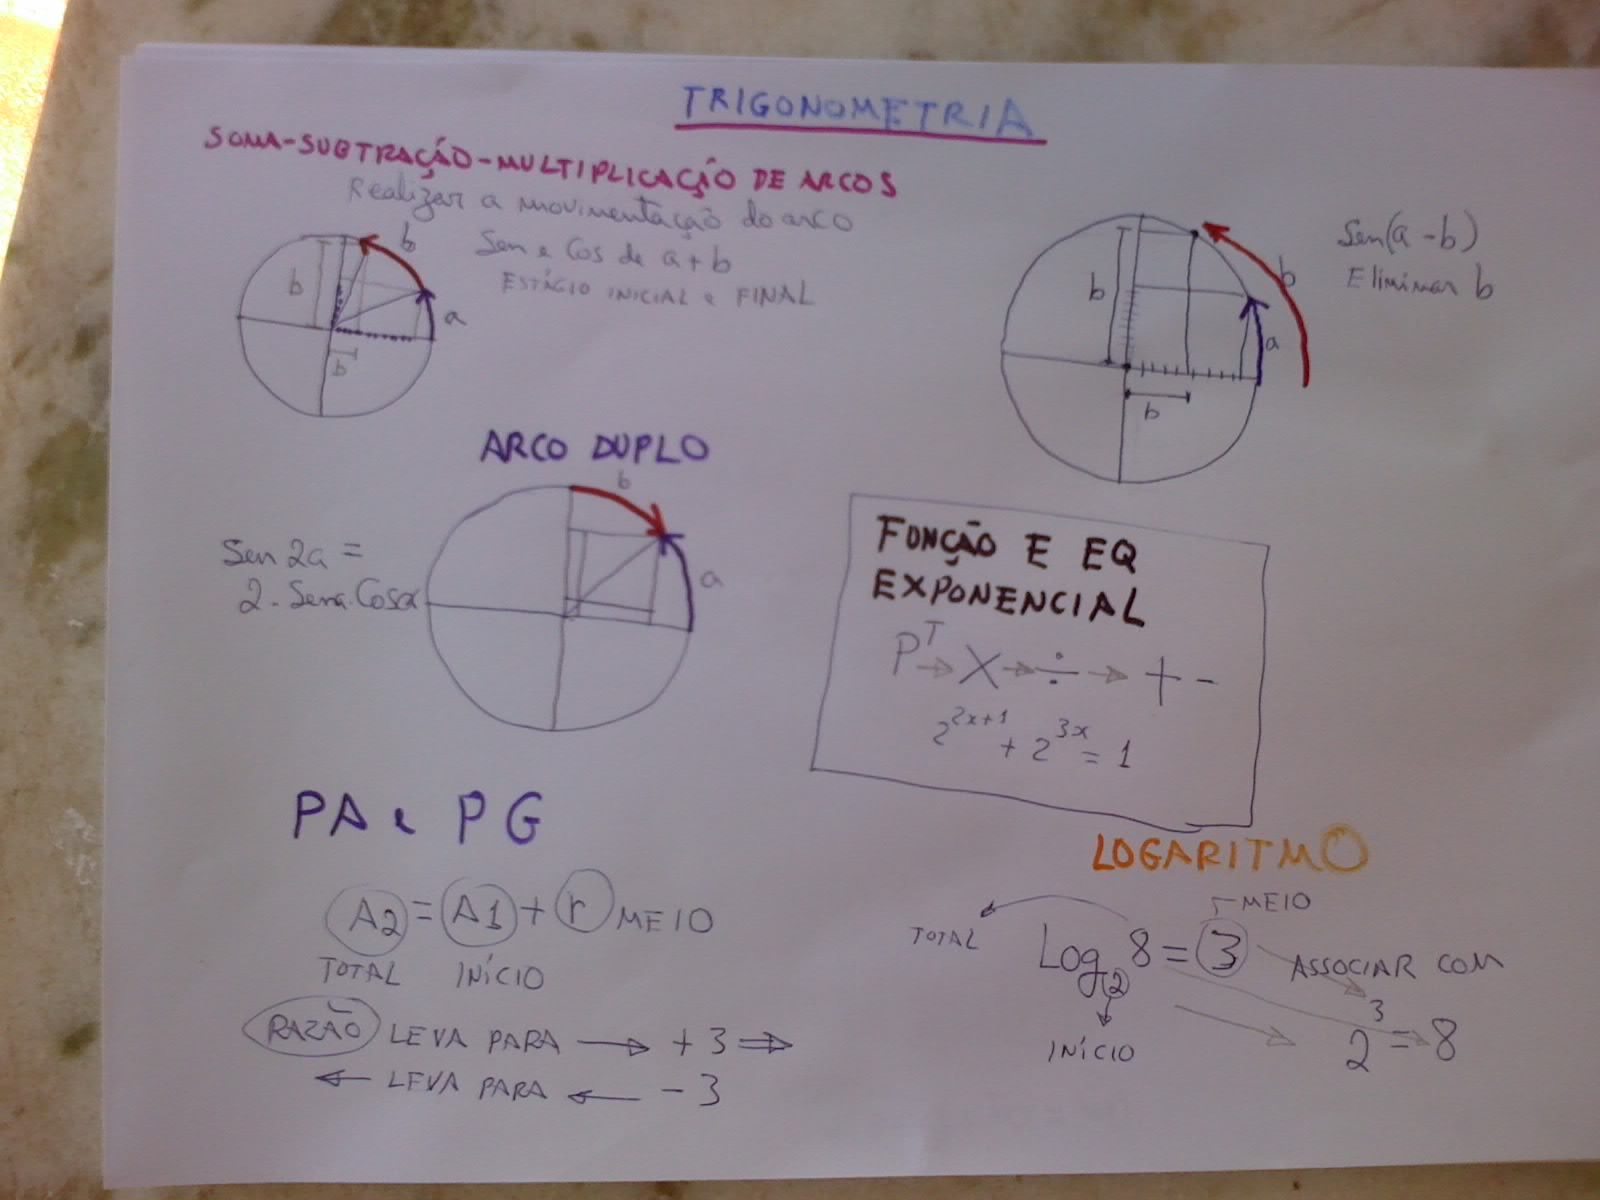 TRIGONOMETRIA
SOMA-SUBTRAÇÃO-MULTIPLICAÇÃO DE ARCOS
Realizar a movimentação do arco
Sen e Cos de a+b
ESTÁGIO INICIAL e FINAL
b
b
a
b
Sen(a-b)
Eliminar b
b
b
a
b
ARCO DUPLO
b
a
Sen 2a =
2. Sena. Cosa
FUNÇÃO E EQ
EXPONENCIAL
P^T → X → ÷ → + -
2^{2x+1} + 2^{3x} = 1
PA e PG
A2 = A1 + r MEIO
TOTAL INÍCIO
RAZÃO LEVA PARA → + 3 ⇒
← LEVA PARA ← - 3
LOGARITMO
MEIO
TOTAL
Log₂ 8 = 3
ASSOCIAR COM
INÍCIO
2³ = 8